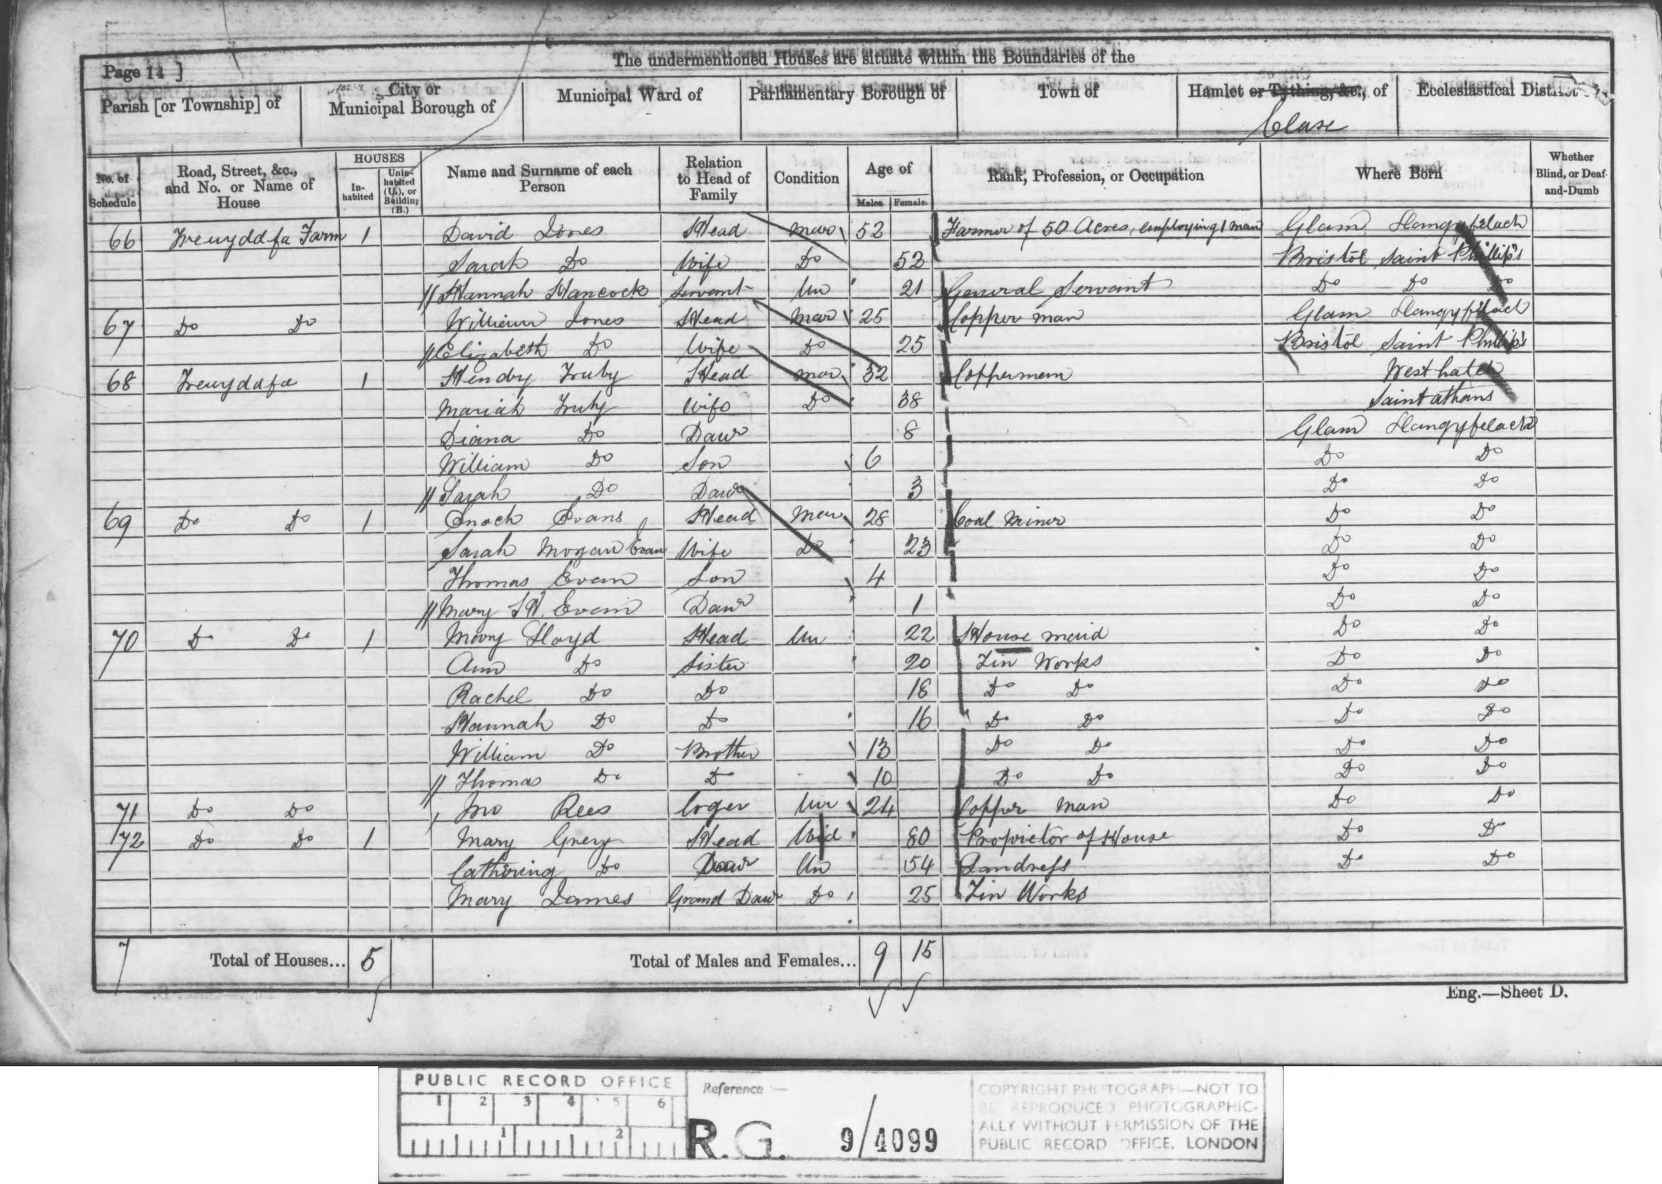 The undermentioned Houses are situate within the Boundaries of the
Page 14 ]
Parish [or Township] of
City or Municipal Borough of
Municipal Ward of
Parliamentary Borough of
Town of
Hamlet or Tything, &c., of
Clase
Ecclesiastical District of
No. of Schedule
Road, Street, &c., and No. or Name of House
HOUSES
In-habited
Unin-habited (U.), or Building (B.)
Name and Surname of each Person
Relation to Head of Family
Condition
Age of
Males
Females
Rank, Profession, or Occupation
Where Born
Whether Blind, or Deaf-and-Dumb
66 Trewyddfa Farm 1 David Jones Head Mar 52 Farmer of 50 Acres, employing 1 man Glam Llangyfelach
Sarah Do Wife Do 52 Bristol Saint Phillip's
Hannah Hancock Servant Un 21 General Servant Do Do Do
67 Do Do William Jones Head Mar 25 Copper man Glam Llangyfelach
Elizabeth Do Wife Do 25 Bristol Saint Phillip's
68 Trewyddfa 1 Hendry Truby Head Mar 32 Copperman
Mariah Truby Wife Do 38 Saint athans
Diana Do Daur 8 Glam Llangyfelach
William Do Son 6 Do Do
Sarah Do Daur 3 Do Do
69 Do Do 1 Enoch Evans Head Mar 28 Coal Miner Do Do
Sarah Morgan Evan Wife Do 23 Do Do
Thomas Evan Son 4 Do Do
Mary Evan Daur 1 Do Do
70 Do Do 1 Mary Lloyd Head Un 22 House maid Do Do
Ann Do Sister 20 Tin Works Do Do
Rachel Do Do 18 Do Do Do Do
Hannah Do Do 16 Do Do Do Do
William Do Brother 13 Do Do Do Do
Thomas Do Do 10 Do Do Do Do
71 Do Do Jno Rees Loger Un 24 Copper man Do Do
72 Do Do 1 Mary Grey Head Wid 80 Proprietor of House Do Do
Cathering Do Daur Un 54 Landress Do Do
Mary James Grand Daur Do 25 Tin Works
7 Total of Houses... 5 Total of Males and Females... 9 15
Eng.—Sheet D.
PUBLIC RECORD OFFICE
1 2 3 4 5 6
1 2
Reference —
R.G. 9/4099
COPYRIGHT PHOTOGRAPH—NOT TO
BE REPRODUCED PHOTOGRAPHIC-
ALLY WITHOUT PERMISSION OF THE
PUBLIC RECORD OFFICE, LONDON